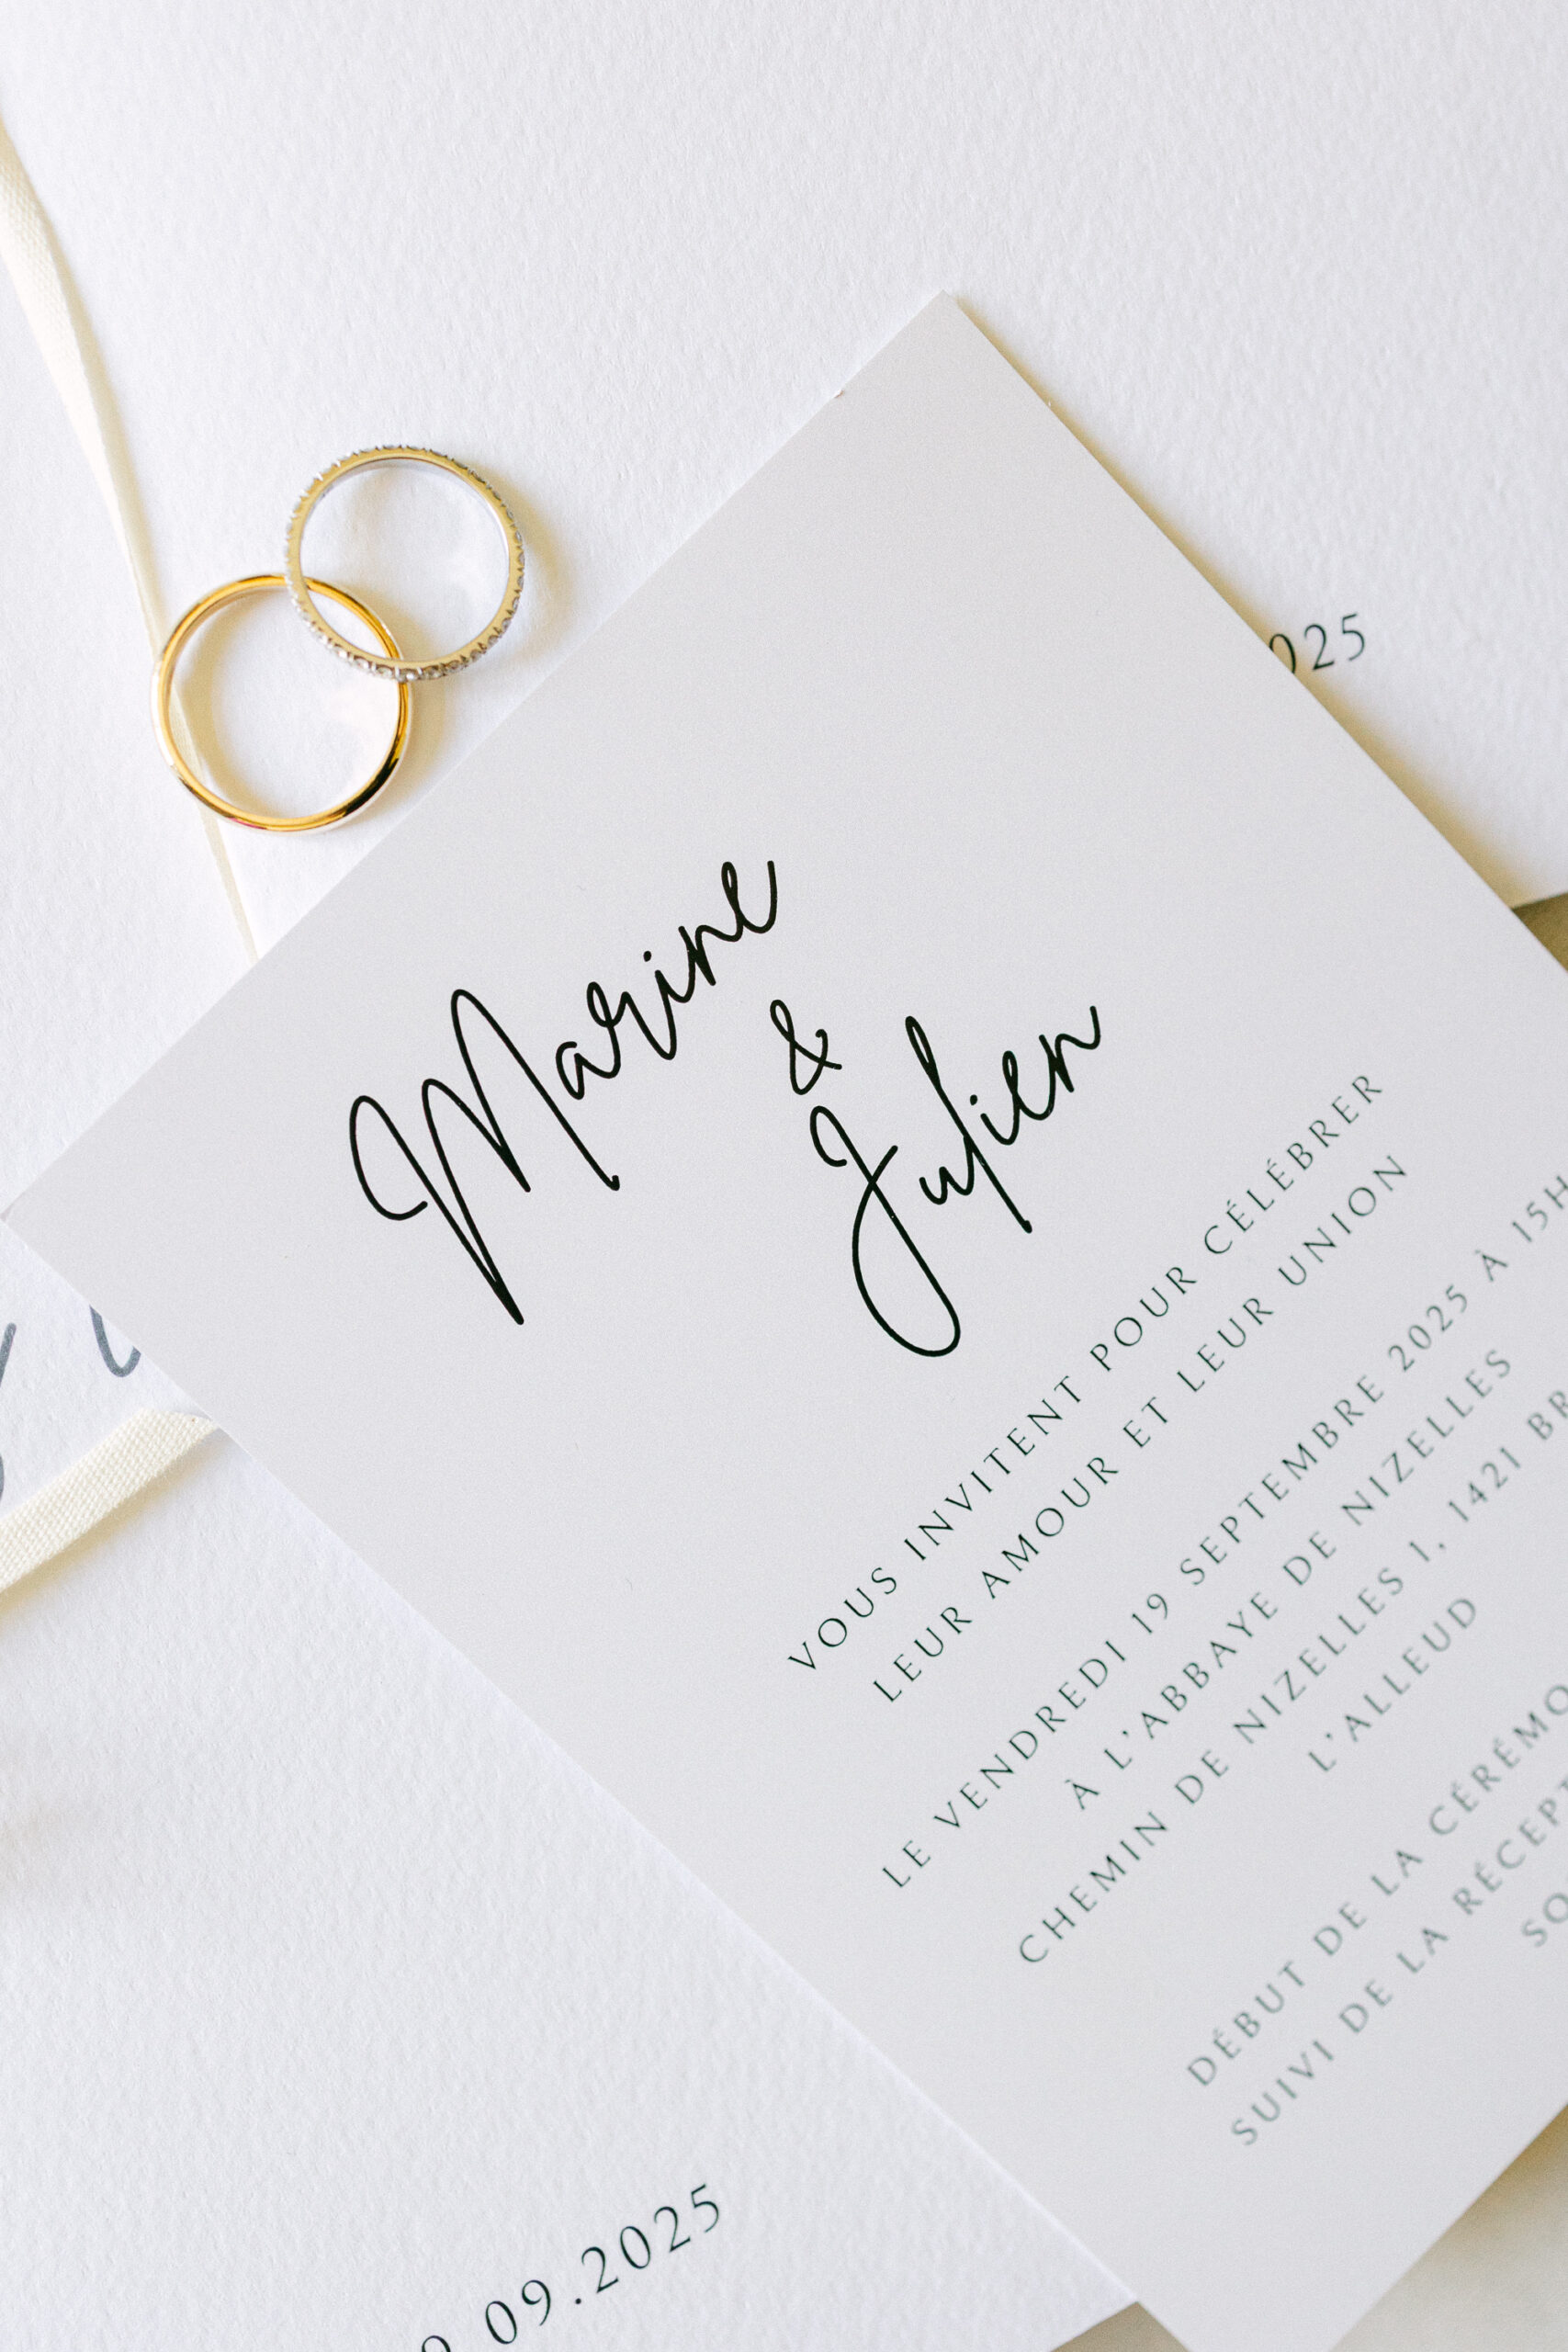 025
Marine
&
Julien
VOUS INVITENT POUR CÉLÉBRER
LEUR AMOUR ET LEUR UNION
LE VENDREDI 19 SEPTEMBRE 2025 À 15H
À L'ABBAYE DE NIZELLES
CHEMIN DE NIZELLES 1, 1421 BR
L'ALLEUD
DÉBUT DE LA CÉRÉMO
SUIVI DE LA RÉCEPT
SO
09.2025